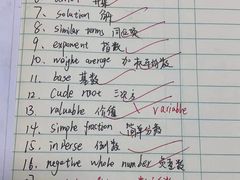 7、solution 解
8、similar terms 同类项
9、exponent 指数
10、weight average 加权平均数
11、base 基数
12、Cude root 三次方
13、valuable 价值 variable
14、simple fraction 简单分数
15、inverse 倒数
16、negetive whole number 负整数